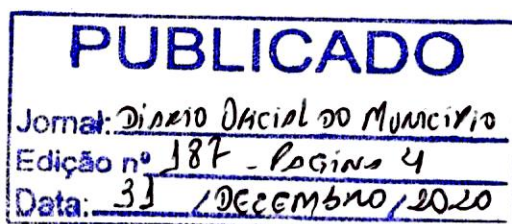 PUBLICADO
Jornal: DIÁRIO OFICIAL DO MUNICÍPIO
Edição nº 187 - PAGINA 4
Data: 31 / DEZEMBRO / 2020